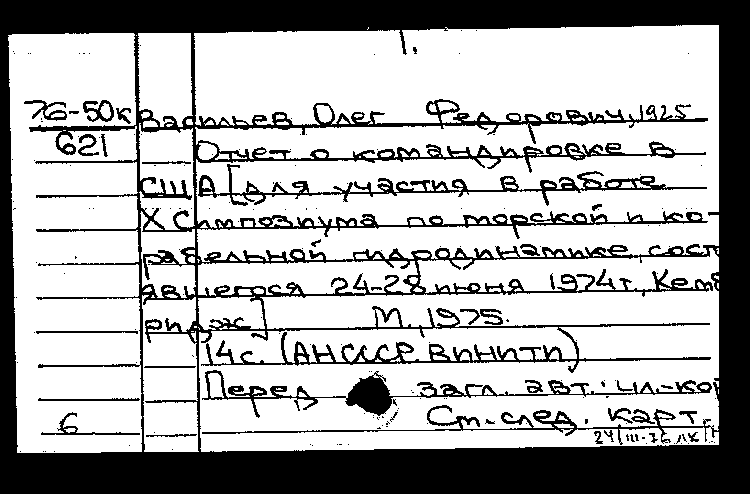 1.
76-50к Васильев, Олег Федорович, 1925
621 Отчет о командировке в
США [для участия в работе
X Симпозиума по морской и ко-
рабельной гидродинамике, сост
явшегося 24-28 июня 1974 г., Кемб
ридж] М., 1975.
14 с. (АН СССР. ВИНИТИ)
Перед загл. авт.: чл.-кор
6 См. след. карт.
24/III-76 ЛК